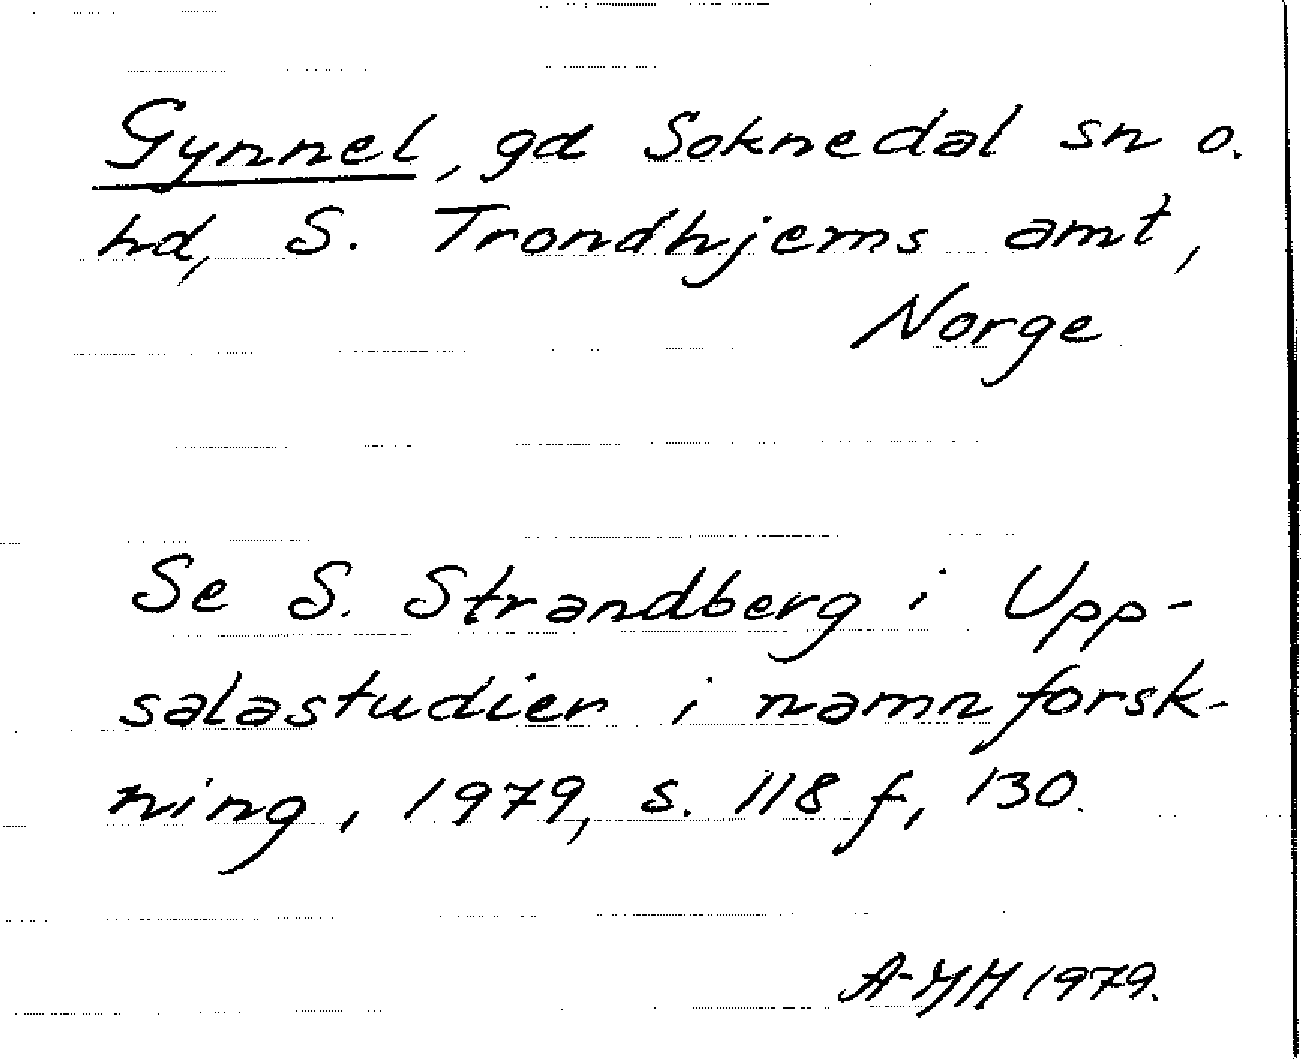 Gynnel, gd Soknedal sn o.
hd, S. Trondhjems amt,
Norge
Se S. Strandberg i Upp-
salastudier i namnforsk-
ning, 1979, s. 118 f, 130.
A-YH 1979.